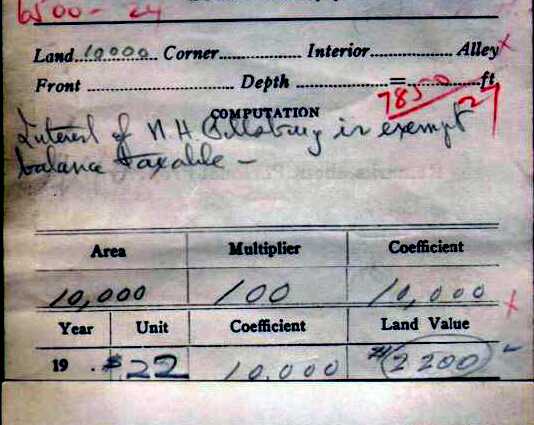 6500 - 24
Land 10000 Corner Interior Alley x
Front Depth = ft.
7850
COMPUTATION
Interest of N H Pillsbury is exempt
balance taxable -
Area Multiplier Coefficient
10,000 100 10,000 x
Year Unit Coefficient Land Value
19 . $.22 10.000 2200